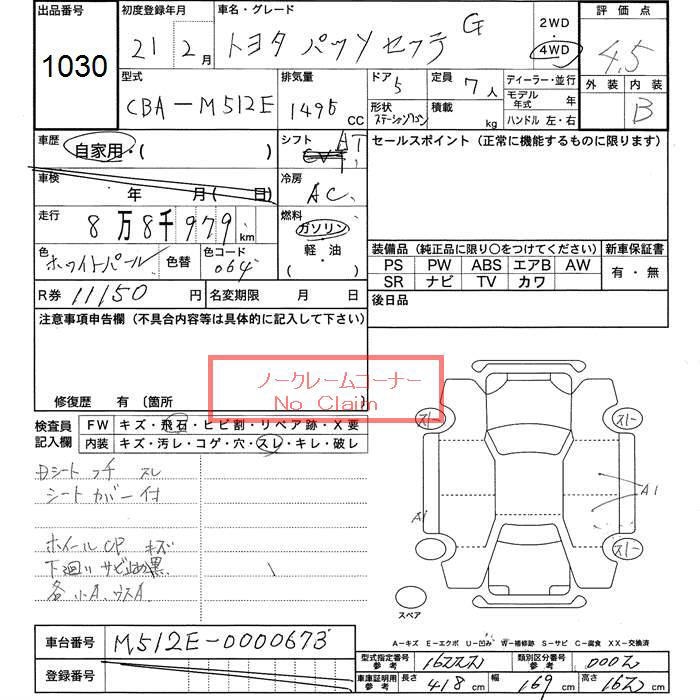 出品番号 初度登録年月 車名・グレード 2WD 評価点
1030 21 2月 トヨタ パッソセッテ G 4WD 4.5
型式 排気量 ドア 5 定員 7人 ディーラー・並行 外装 内装
CBA-M512E 1495 CC 形状 ステーションワゴン 積載 kg モデル年式 年 B
ハンドル 左・右
車歴 自家用・( ) シフト AT セールスポイント(正常に機能するものに限ります)
車検 年 月( 日) 冷房 AC
走行 8万8千979 km 燃料 ガソリン
軽・油
( )
色 ホワイトパール 色替 色コード 064
装備品(純正品に限り○をつけてください) 新車保証書
PS PW ABS エアB AW 有・無
SR ナビ TV カワ
R券 11150 円 名変期限 月 日 後日品
注意事項申告欄(不具合内容等は具体的に記入して下さい)
ノークレームコーナー
No Claim
修復歴 有 (箇所
検査員記入欄 FW キズ・飛石・ヒビ割・リペア跡・X要
内装 キズ・汚レ・コゲ・穴・スレ・キレ・破レ
Dシート フチ スレ
シートカバー付
ホイールCP キズ
下廻り サビ止め黒
各小A.ウスA.
スレ スレ
A1 A1
スレ
スペア
A-キズ E-エクボ U-凹み W-補修跡 S-サビ C-腐食 XX-交換済
車台番号 M512E-0000673
登録番号
型式指定番号 参考 類別区分番号 参考
車庫証明用 参考 長さ 418 cm 幅 169 cm 高さ cm